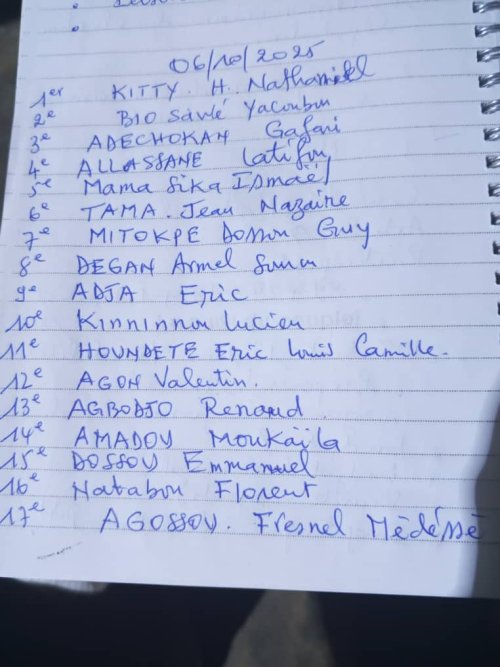 06/10/2025
1er KITTY. H. Nathaniel
2e BIO Saulé Yacoubou
3e ADECHOKAN Gafari
4e ALLASSANE Latifou
5e Mama Sika Ismaël
6e TAMA. Jean Nazaire
7e MITOKPE Dossou Guy
8e DEGAN Armel
9e ADJA Eric
10e Kinninnou Lucien
11e HOUNDETE Eric Louis Camille.
12e AGON Valentin.
13e AGBODJO Renaud
14e AMADOU Moukaïla
15e DOSSOU Emmanuel
16e Natabou Florent
17e AGOSSOU. Fresnel Mèdéssè